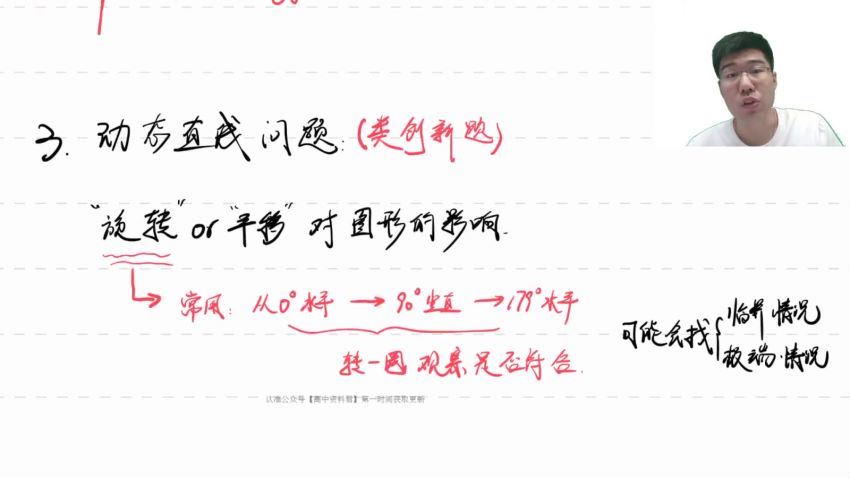 3. 动态直线问题:(类创新题)
“旋转”or“平移”对图形的影响.
常用: 从0°水平→90°竖直→179°水平
转一圈 观察是否符合.
可能会找{临界情况
极端情况
认准公众号【高中资料君】第一时间获取更新